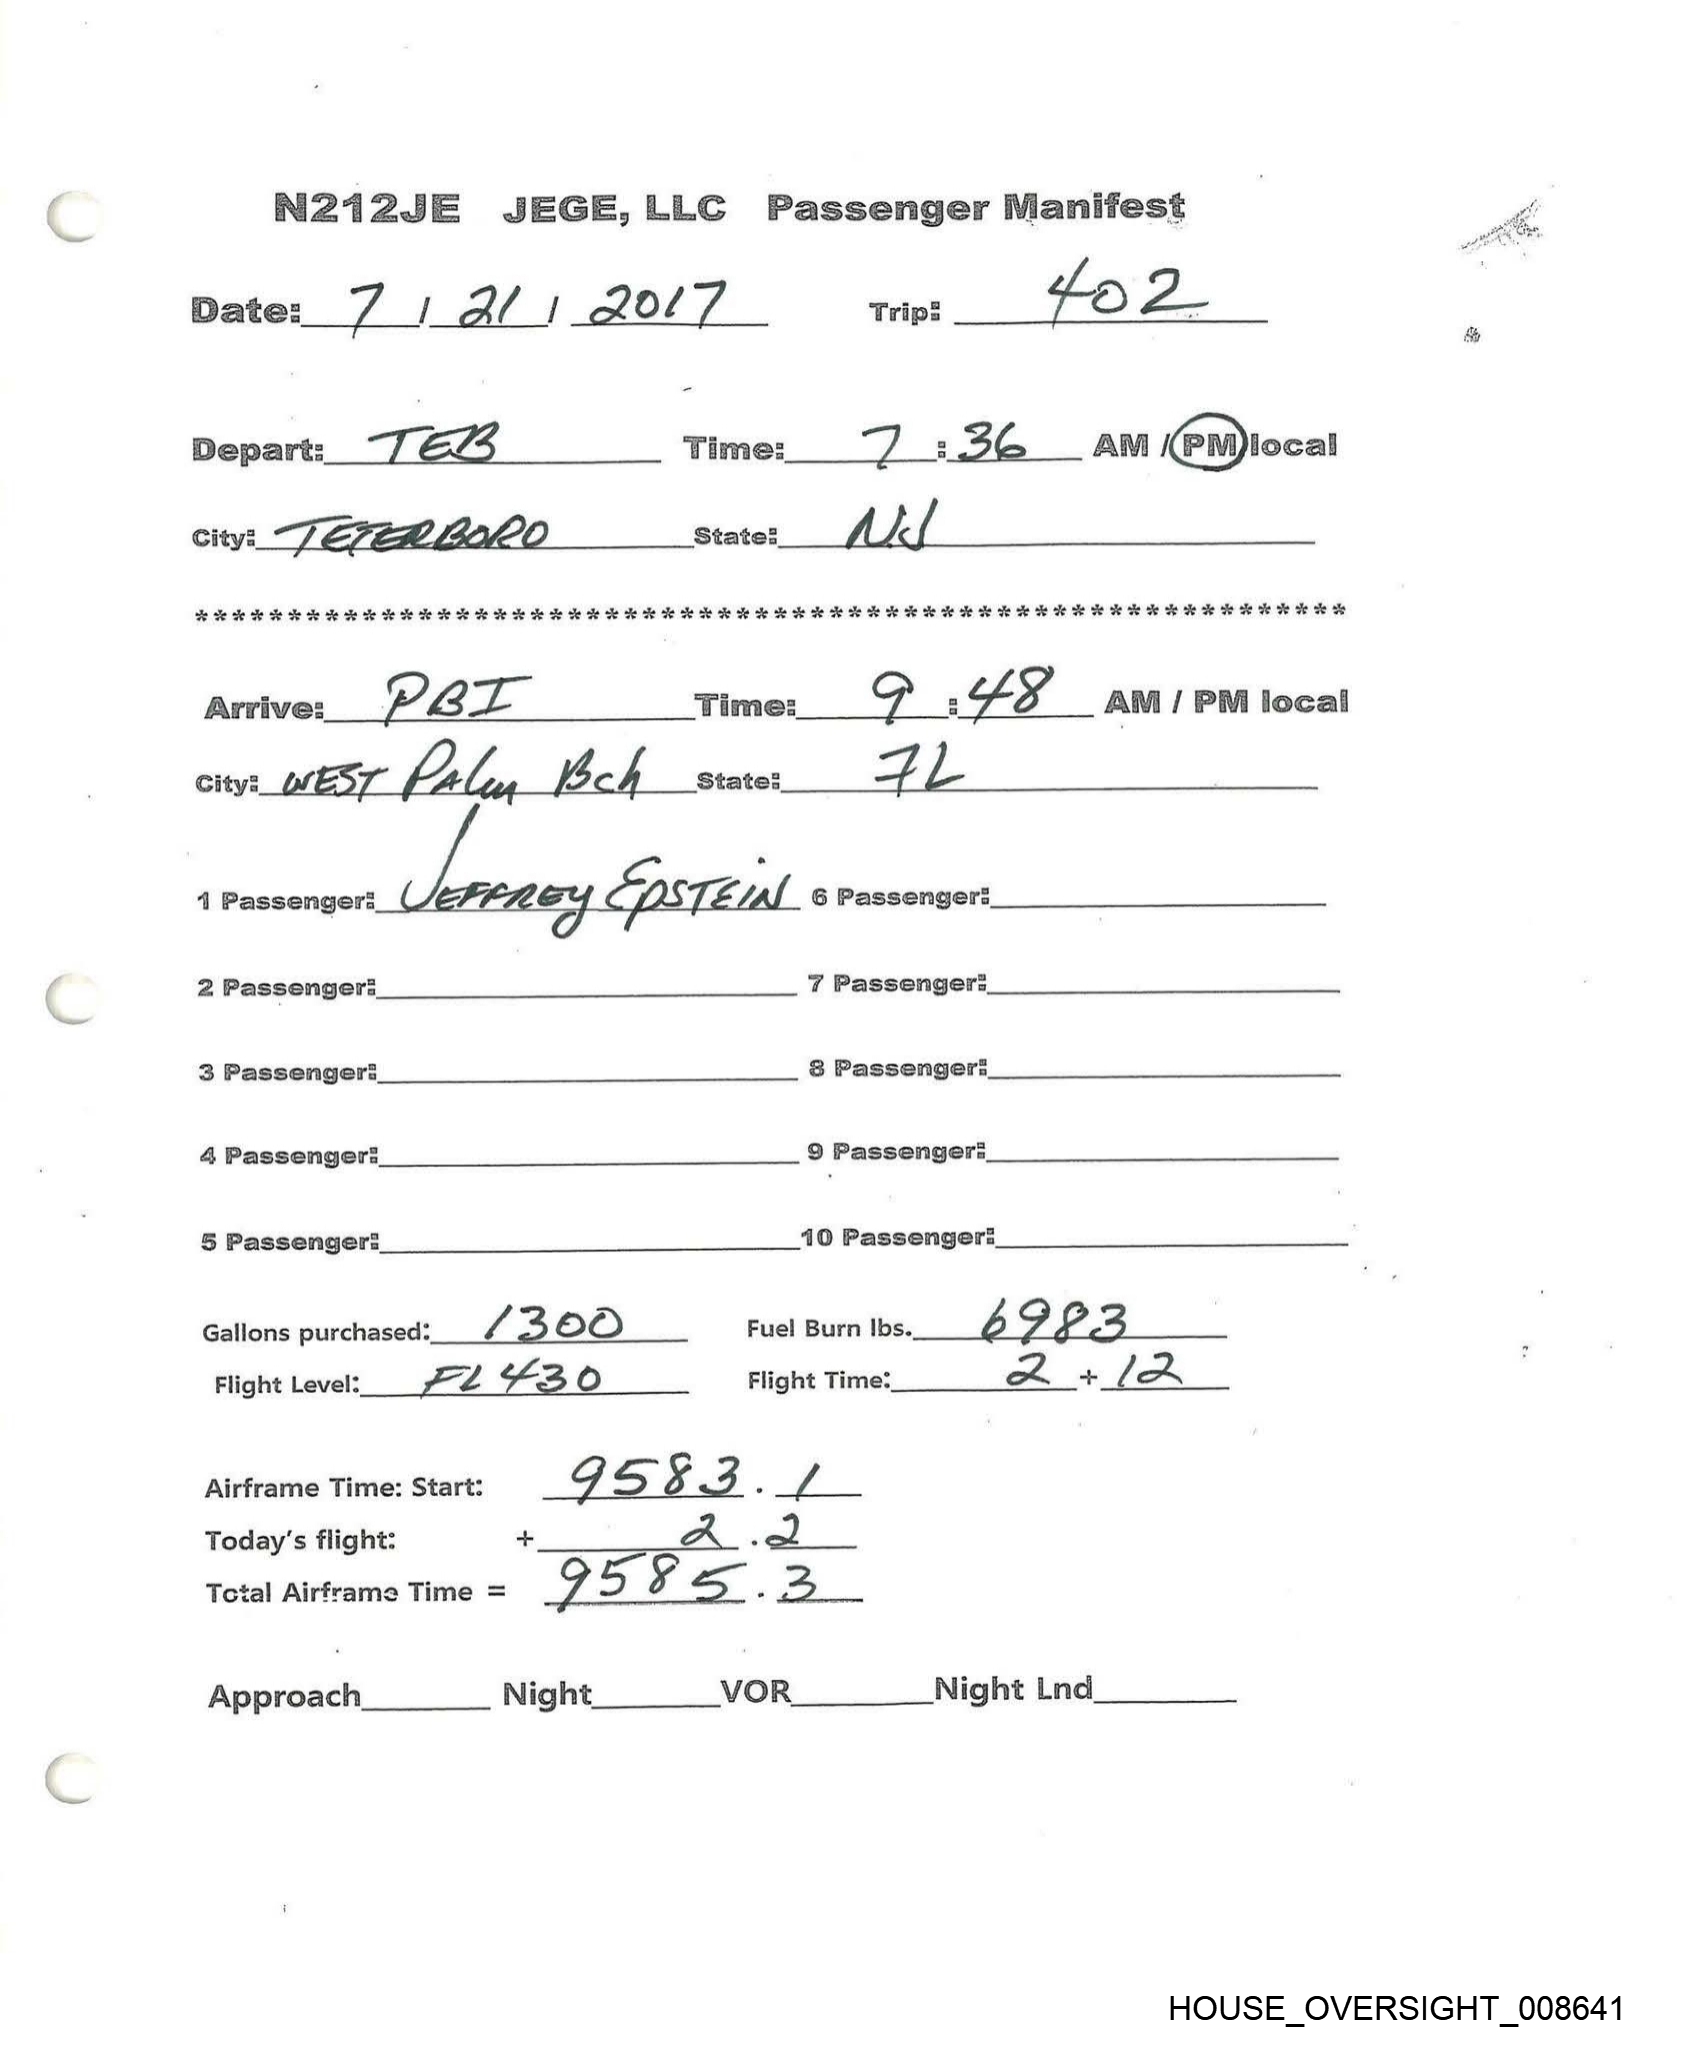 N212JE JEGE, LLC Passenger Manifest
Date: 7 / 21 / 2017 Trip: 402
Depart: TEB Time: 7 : 36 AM / PM local
City: TETERBORO State: NJ
**************************************************************
Arrive: PBI Time: 9 : 48 AM / PM local
City: WEST PALm Bch State: FL
1 Passenger: JEFFREY EPSTEIN 6 Passenger:
2 Passenger: 7 Passenger:
3 Passenger: 8 Passenger:
4 Passenger: 9 Passenger:
5 Passenger: 10 Passenger:
Gallons purchased: 1300 Fuel Burn lbs. 6983
Flight Level: FL430 Flight Time: 2 + 12
Airframe Time: Start: 9583.1
Today's flight: + 2.2
Total Airframe Time = 9585.3
Approach Night VOR Night Lnd
HOUSE_OVERSIGHT_008641